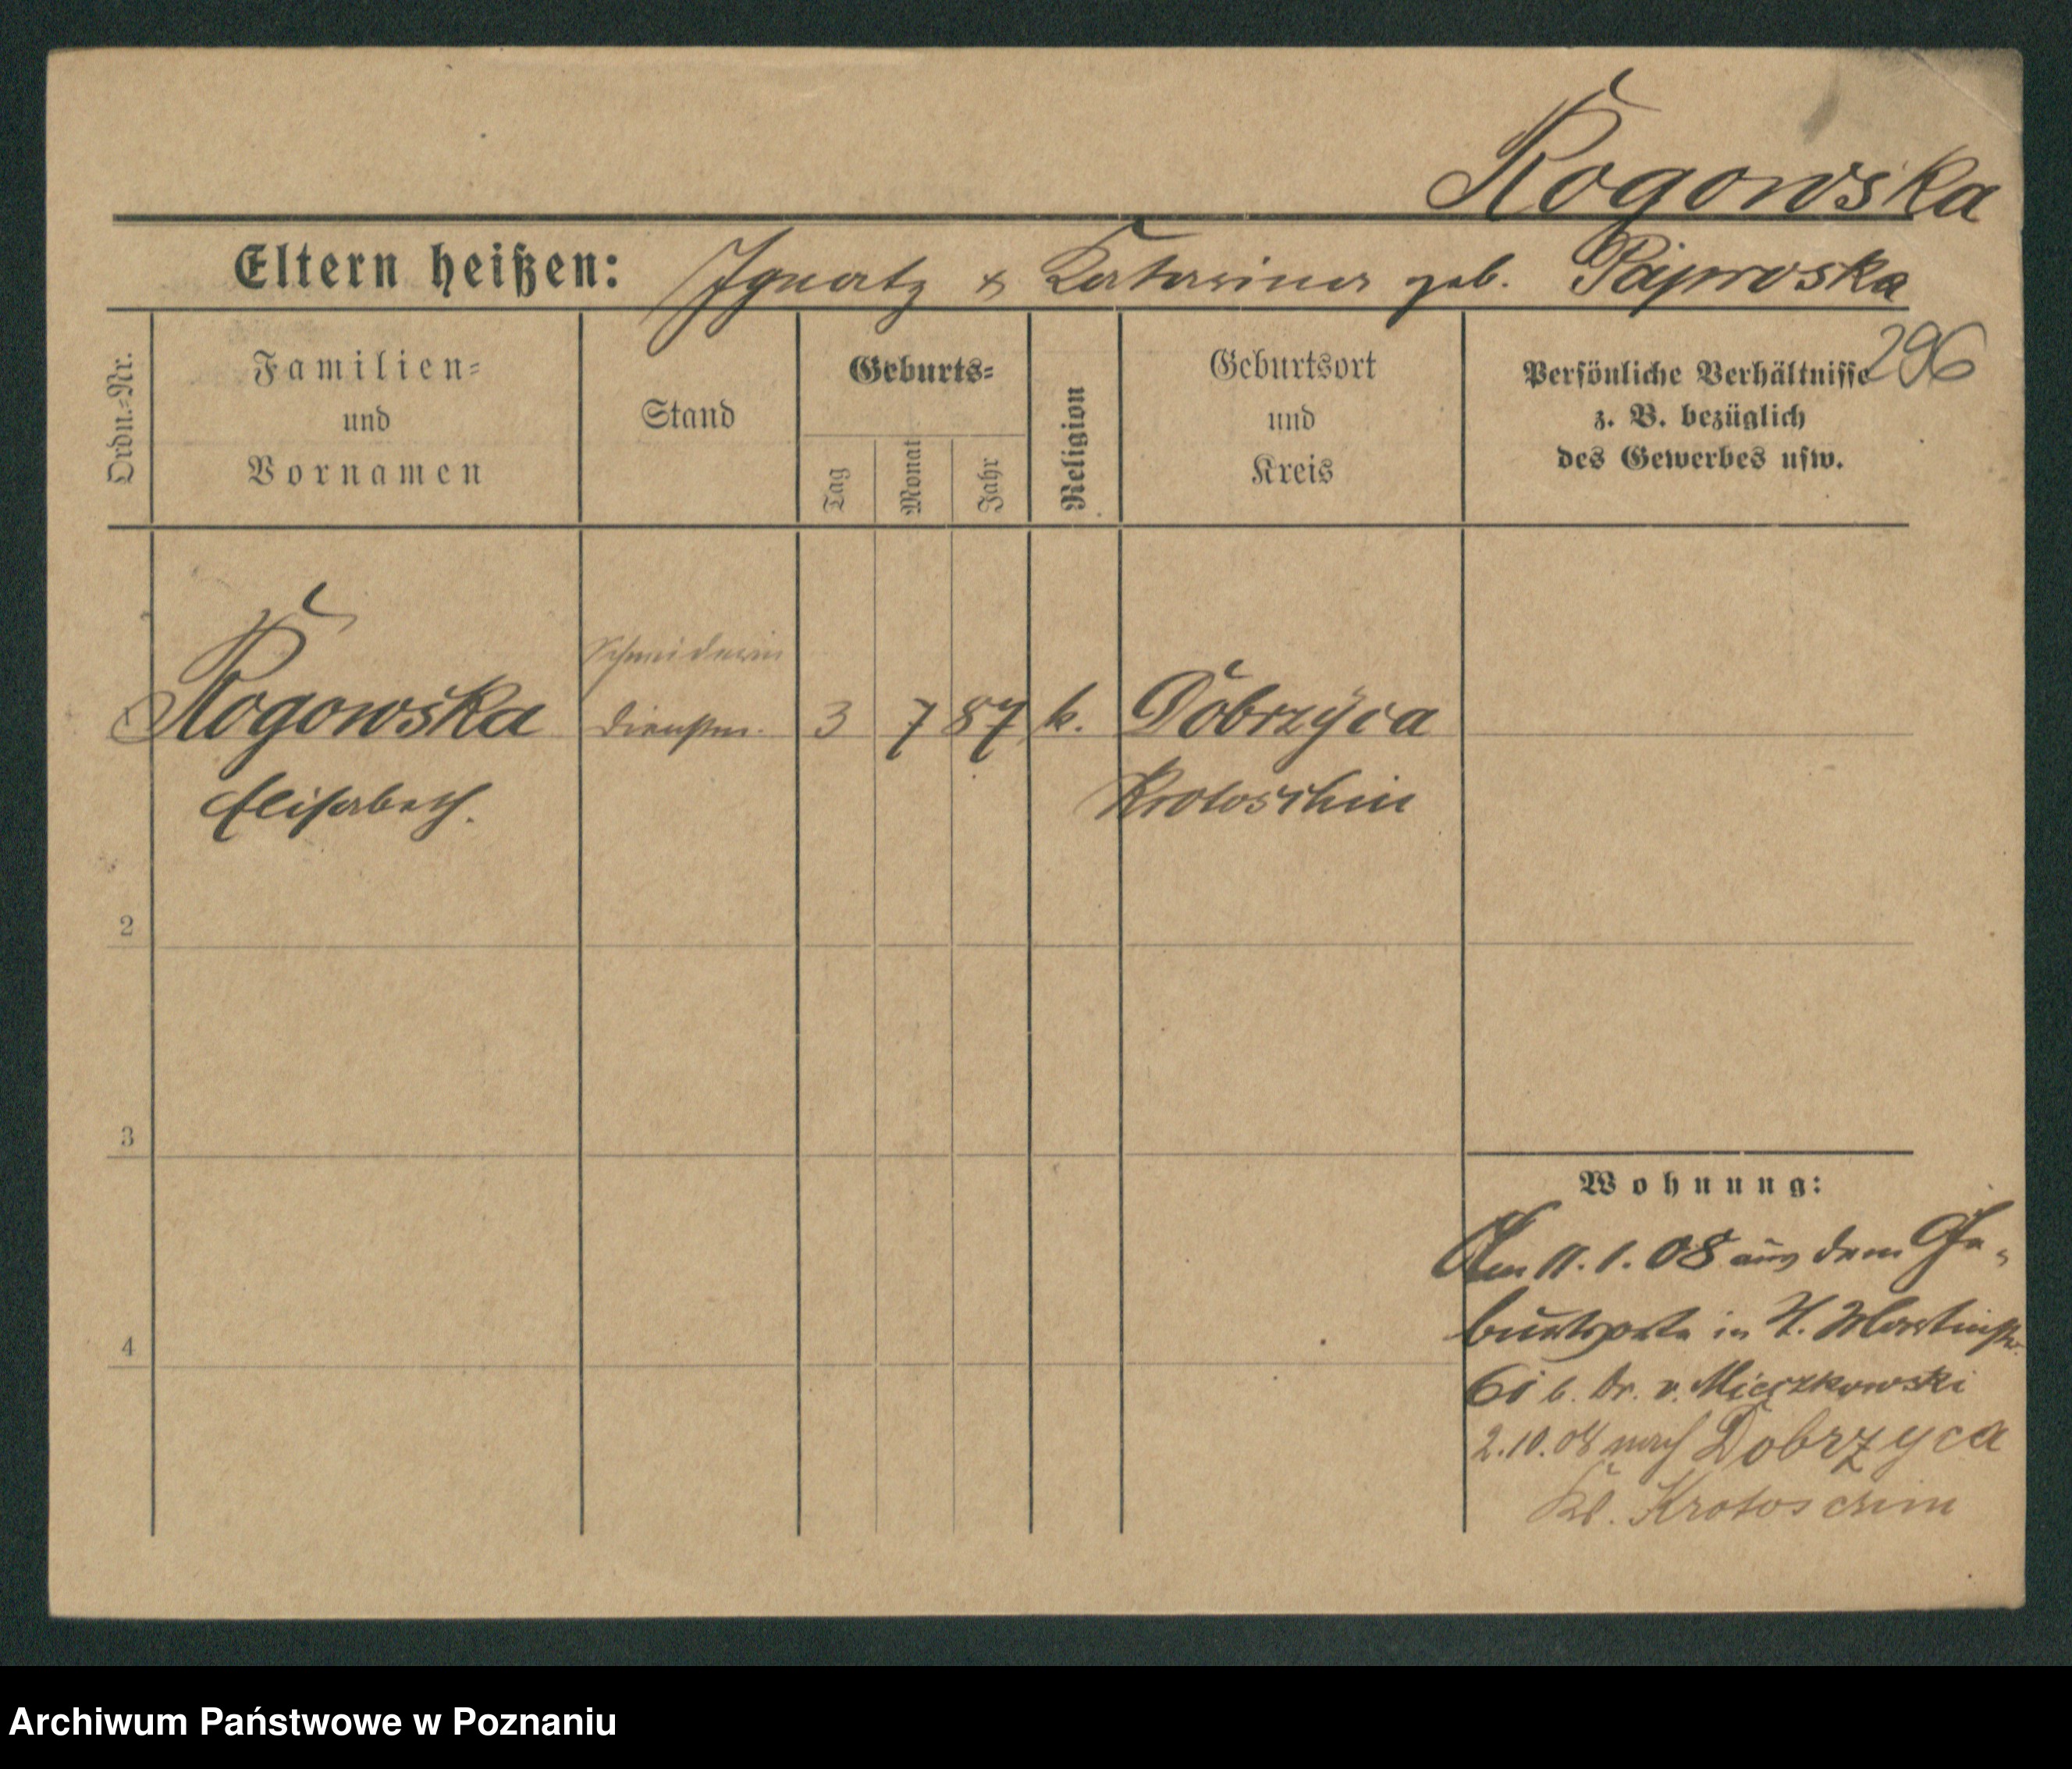 Rogowska
Eltern heißen: Ignatz & Katharina geb. Paproska
296
Ordn.-Nr.
Familien-
und
Vornamen
Stand
Geburts-
Tag
Monat
Jahr
Religion
Geburtsort
und
Kreis
Persönliche Verhältnisse
z. B. bezüglich
des Gewerbes usw.
Schneiderin
Rogowska Dienstm. 3 7 87 k. Dobrzyca
Elisabeth. Krotoschin
2
3
4
Wohnung:
Am 11.1.08 aus dem Ge-
burtsorte in St. Martinstr.
61 b. Dr. v. Mieczkowski
2.10.08 nach Dobrzyca
Krotoschin
Archiwum Państwowe w Poznaniu